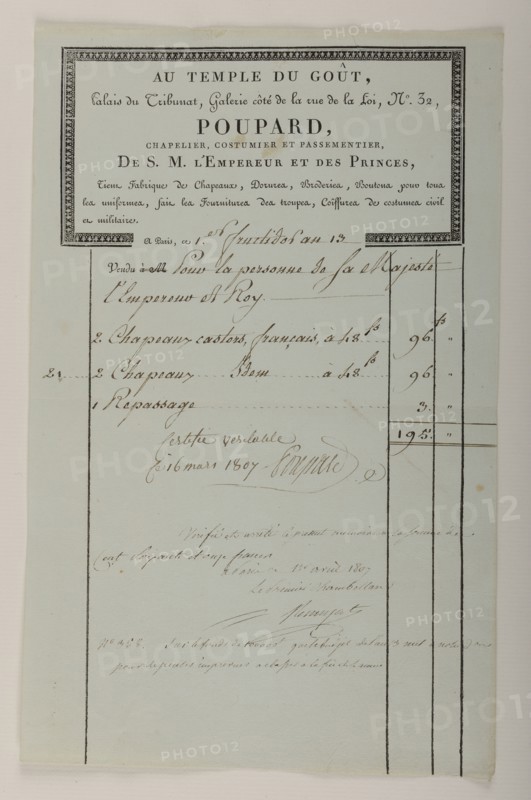 AU TEMPLE DU GOÛT,
Palais du Tribunat, Galerie côté de la rue de la Loi, N.º 32,
POUPARD,
CHAPELIER, COSTUMIER ET PASSEMENTIER,
DE S. M. L'EMPEREUR ET DES PRINCES,
Tient Fabrique de Chapeaux, Dorures, Broderies, Boutons pour tous
les uniformes, fait les Fournitures des troupes, Coiffures des costumes civil
et militaires.
A Paris, ce 1.er fructidor an 13
Vendu à M Pour la personne de Sa Majesté
l'Empereur et Roy.
2 Chapeaux castors, français, a 48 fs 96 fs "
21 2 Chapeaux Idem à 48 fs 96. "
1 Repassage 3. "
195. "
Certifié véritable
Ce 16 mars 1807 Poupard
Vérifié et arrêté le présent mémoire la somme de
Cent francs
a Paris 1er avril 1807
Le Premier Chambellan
PHOTO12